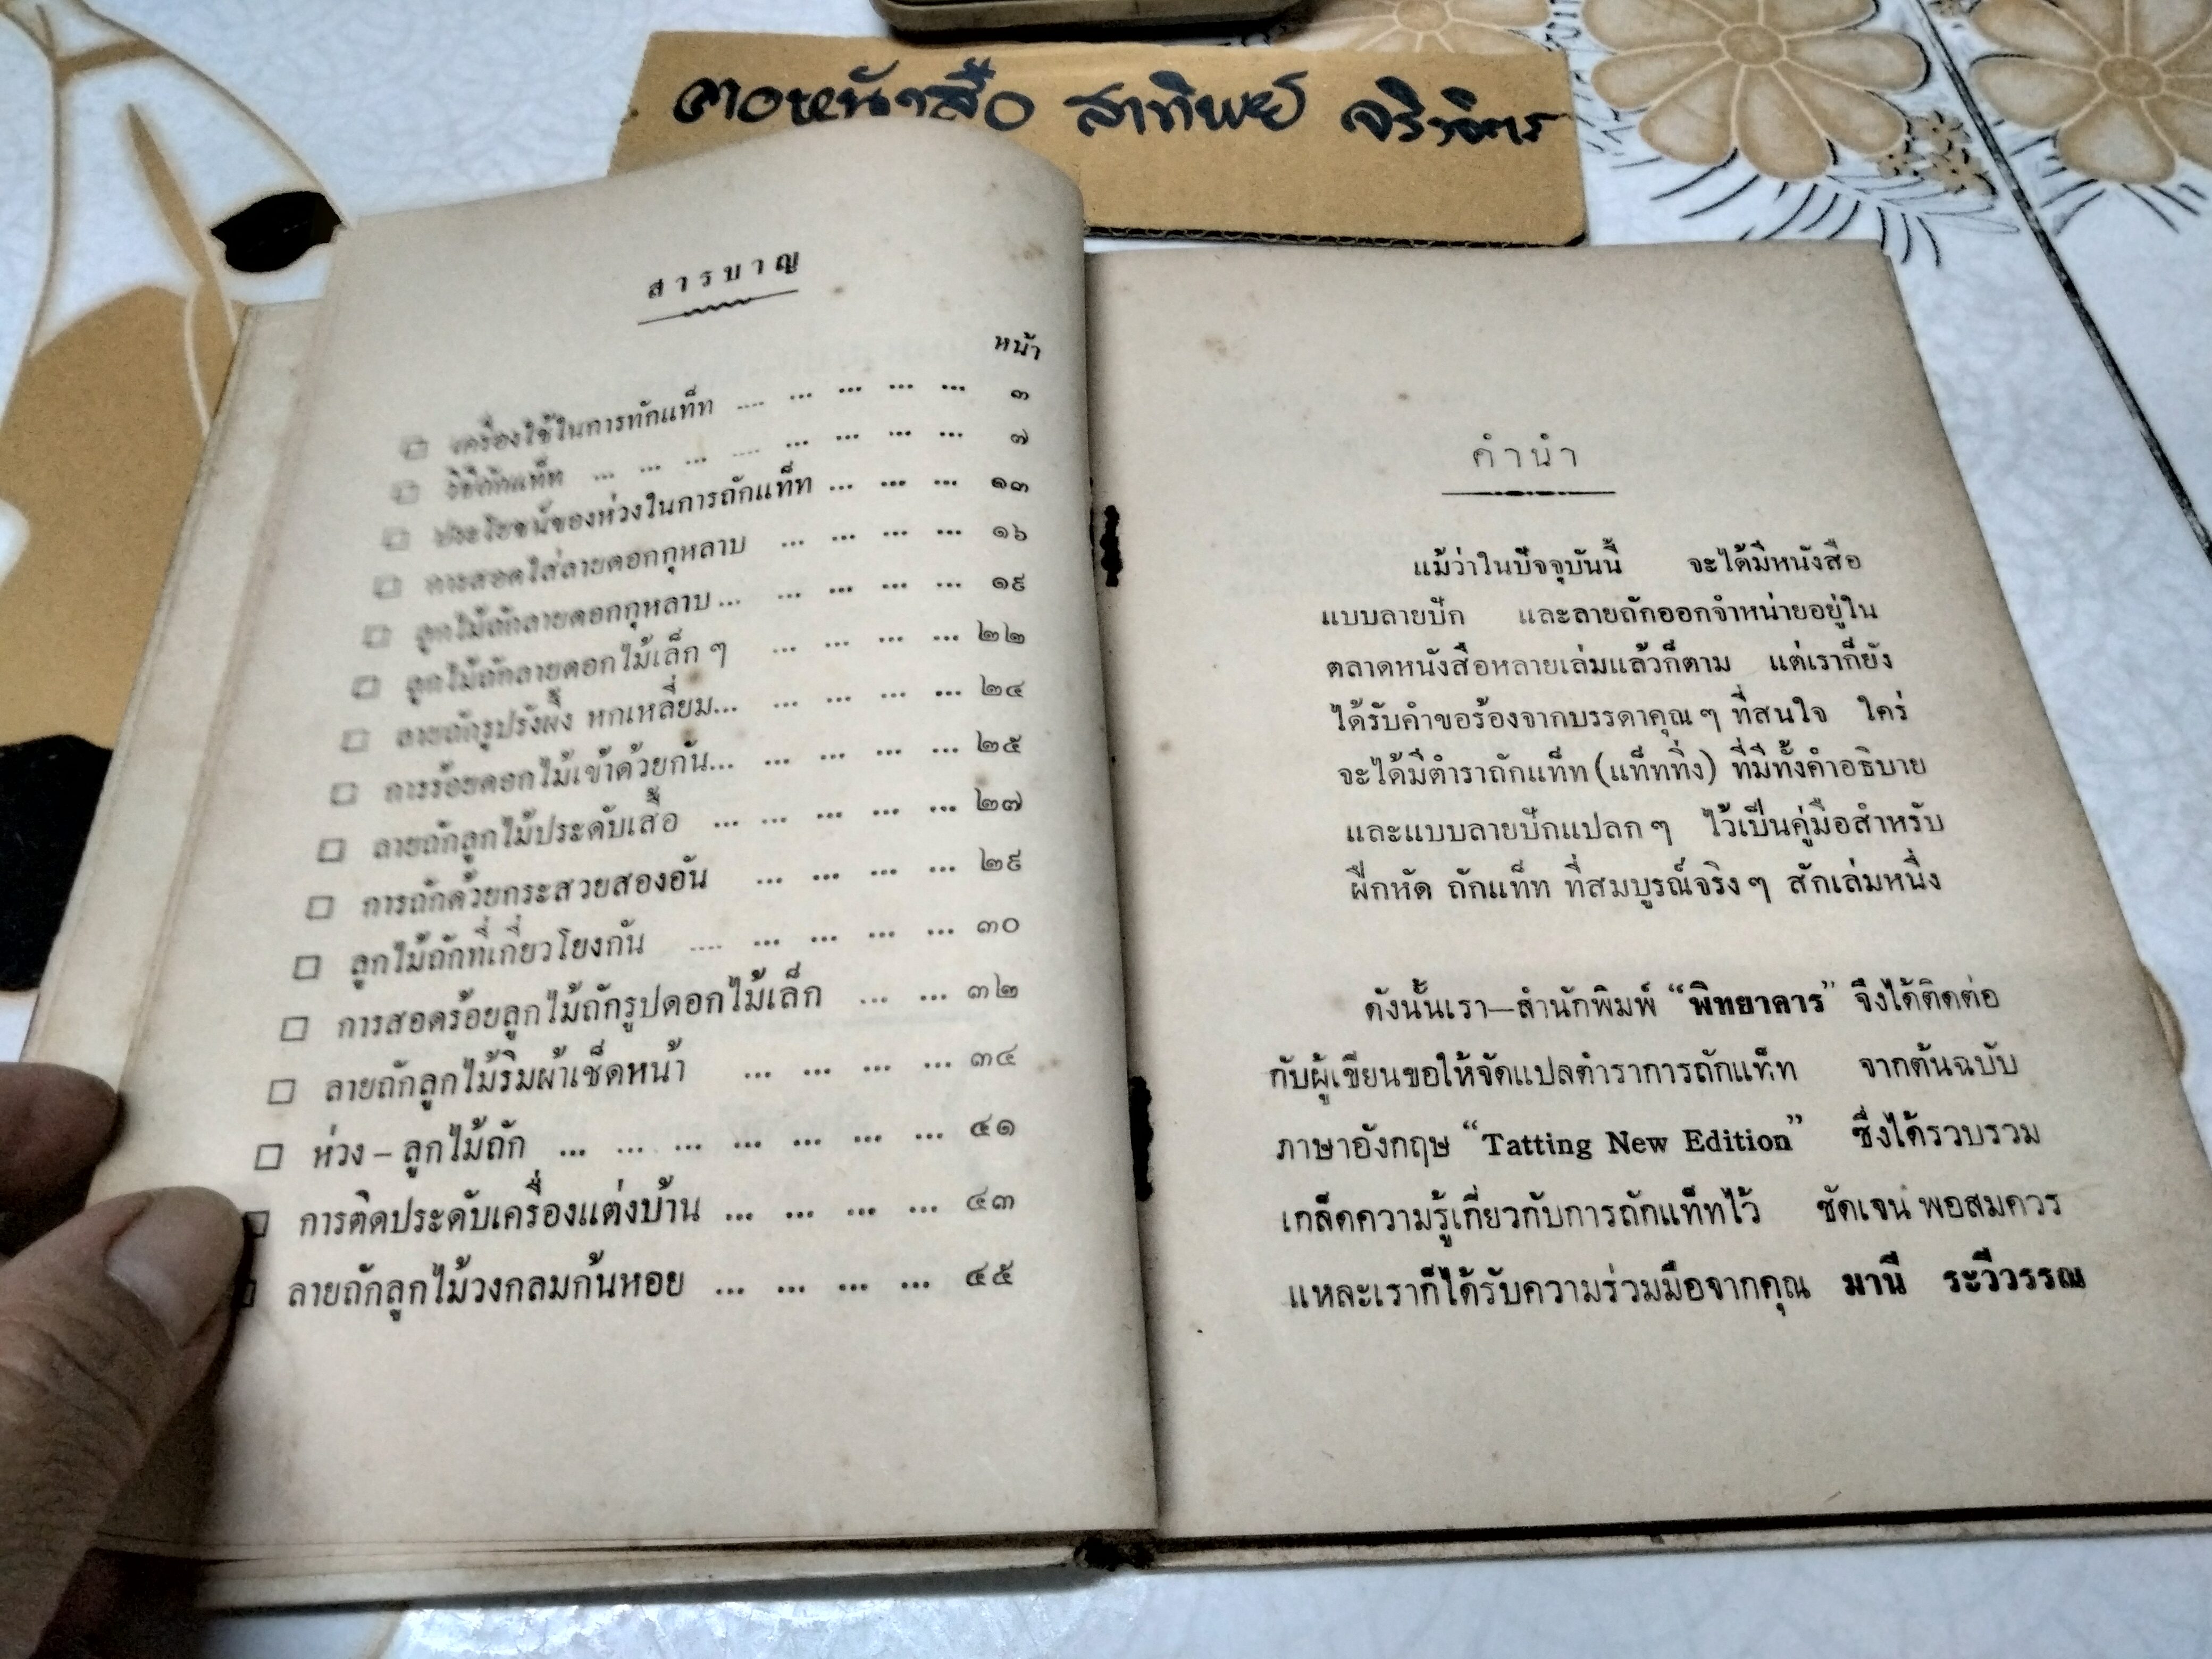 สาทิพย์
สารบาญ
หน้า
เครื่องใช้ในการทักแท็ท .... ... ... ... ... ๓
วิธีถักแท็ท ... ... ... .... ... ... ... ... ๗
ประโยชน์ของห่วงในการถักแท็ท ... ... ... ๑๓
การสอดใส่ลายดอกกุหลาบ ... ... ... ... ๑๖
ลูกไม้ถักลายดอกกุหลาบ ... ... ... ... ... ๑๙
ลูกไม้ถักลายดอกไม้เล็ก ๆ ... ... ... ... ๒๒
ลายถักรูปรังผึ้ง หกเหลี่ยม... ... ... ... ... ๒๔
การร้อยดอกไม้เข้าด้วยกัน... ... ... ... ... ๒๕
ลายถักลูกไม้ประดับเสื้อ ... ... ... ... ... ๒๗
การถักด้วยกระสวยสองอัน ... ... ... ... ๒๙
ลูกไม้ถักที่เกี่ยวโยงกัน .... ... ... ... ... ๓๐
การสอดร้อยลูกไม้ถักรูปดอกไม้เล็ก ... ... ๓๒
ลายถักลูกไม้ริมผ้าเช็ดหน้า ... ... ... ... ๓๔
ห่วง – ลูกไม้ถัก ... ... ... ... ... ... ... ๔๑
การติดประดับเครื่องแต่งบ้าน ... ... ... ... ๔๓
ลายถักลูกไม้วงกลมก้นหอย ... ... ... ... ๔๕
คำนำ
แม้ว่าในปัจจุบันนี้ จะได้มีหนังสือ
แบบลายปัก และลายถักออกจำหน่ายอยู่ใน
ตลาดหนังสือหลายเล่มแล้วก็ตาม แต่เราก็ยัง
ได้รับคำขอร้องจากบรรดาคุณ ๆ ที่สนใจ ใคร่
จะได้มีตำราถักแท็ท (แท็ททิ่ง) ที่มีทั้งคำอธิบาย
และแบบลายปักแปลก ๆ ไว้เป็นคู่มือสำหรับ
ฝึกหัด ถักแท็ท ที่สมบูรณ์จริง ๆ สักเล่มหนึ่ง
ดังนั้นเรา—สำนักพิมพ์ “พิทยาคาร” จึงได้ติดต่อ
กับผู้เขียนขอให้จัดแปลตำราการถักแท็ท จากต้นฉบับ
ภาษาอังกฤษ “Tatting New Edition” ซึ่งได้รวบรวม
เกล็ดความรู้เกี่ยวกับการถักแท็ทไว้ ชัดเจน พอสมควร
แหละเราก็ได้รับความร่วมมือจากคุณ มานี ระวีวรรณ